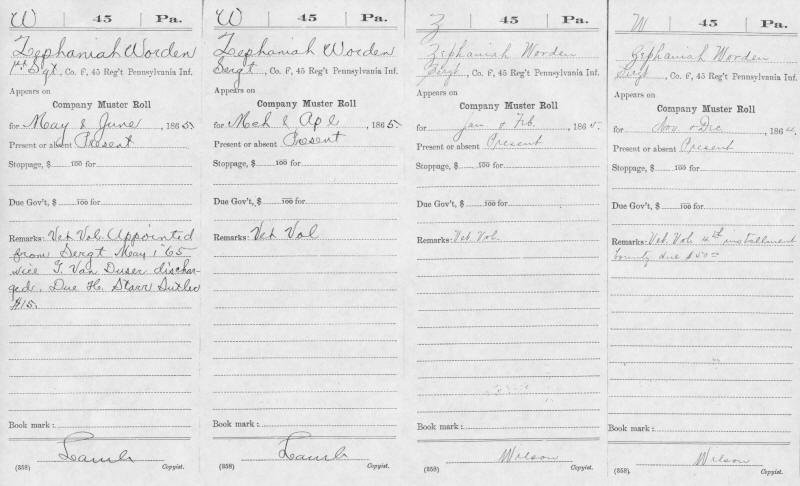 W 45 Pa.
Zephaniah Worden
1st Sgt, Co. F, 45 Reg't Pennsylvania Inf.
Appears on
Company Muster Roll
for May & June, 1865.
Present or absent Present
Stoppage, $ 100 for
Due Gov't, $ 100 for
Remarks: Vet Vol. Appointed
from Sergt May 1 '65
vice T. Van Duser dischar-
ged. Due H. Starr Sutler
$15.
Book mark:
Lamb
(358) Copyist.
W 45 Pa.
Zephaniah Worden
Sergt, Co. F, 45 Reg't Pennsylvania Inf.
Appears on
Company Muster Roll
for Mch & Apl, 1865.
Present or absent Present
Stoppage, $ 100 for
Due Gov't, $ 100 for
Remarks: Vet Vol
Book mark:
Lamb
(358) Copyist.
Z 45 Pa.
Zephaniah Worden
Sergt, Co. F, 45 Reg't Pennsylvania Inf.
Appears on
Company Muster Roll
for Jan & Feb., 1865.
Present or absent Present
Stoppage, $ 100 for
Due Gov't, $ 100 for
Remarks: Vet. Vol.
Book mark:
Wilson
(358) Copyist.
W 45 Pa.
Zephaniah Worden
Sergt, Co. F, 45 Reg't Pennsylvania Inf.
Appears on
Company Muster Roll
for Nov. & Dec, 1864.
Present or absent Present
Stoppage, $ 100 for
Due Gov't, $ 100 for
Remarks: Vet. Vol. 4th installment
bounty due $50=
Book mark:
Wilson
(358) Copyist.